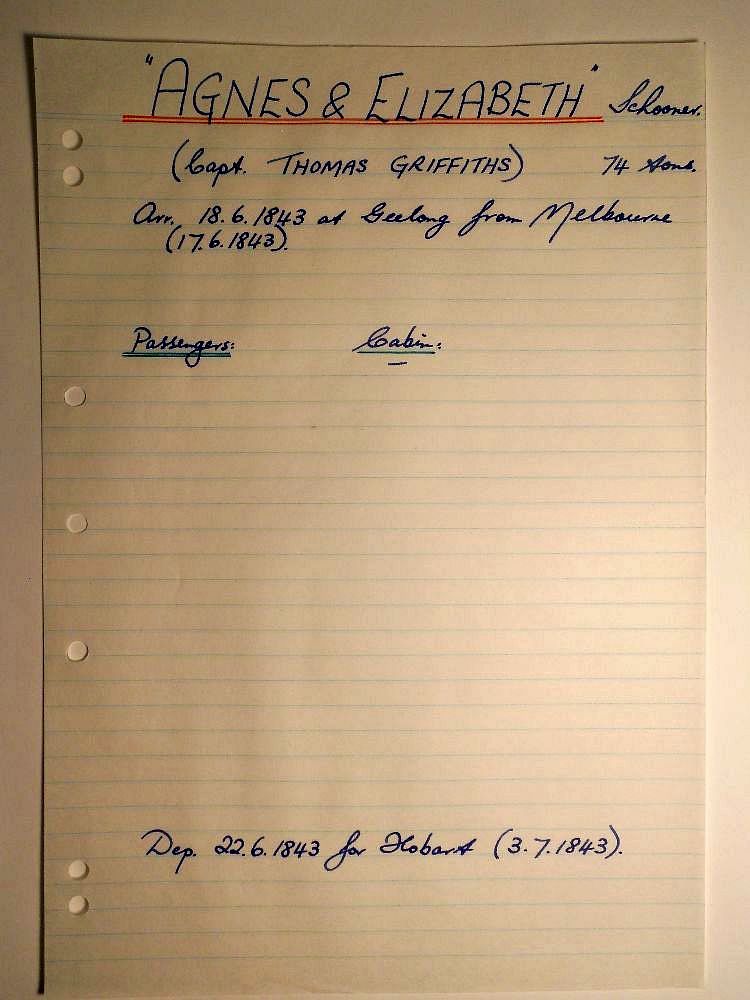 "AGNES & ELIZABETH" Schooner.
(Capt. THOMAS GRIFFITHS) 74 tons.
Arr. 18.6.1843 at Geelong from Melbourne
(17.6.1843).
Passengers: Cabin:
—
Dep. 22.6.1843 for Hobart (3.7.1843).